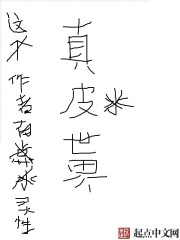 真皮世界
作者有水灵性
起点中文网